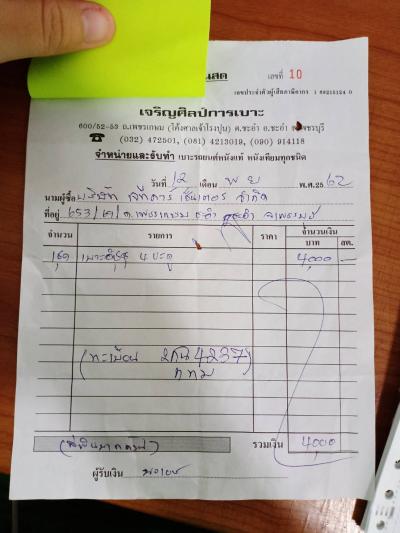 นสด
เลขที่ 10
เลขประจำตัวผู้เสียภาษีอากร
เจริญศิลป์การเบาะ
600/52-53 ถ.เพชรเกษม (โค้งศาลเจ้าโรงปูน) ต.ชะอำ อ.ชะอำ จ.เพชรบุรี
☎ (032) 472501, (081) 4213019, (090) 914118
จำหน่ายและรับทำ เบาะรถยนต์หนังแท้ หนังเทียมทุกชนิด
วันที่ 12 เดือน พ.ย พ.ศ.2562
นามผู้ซื้อ บริษัท จำกัด
ที่อยู่ 653/ ถ.เพชรเกษม ชะอำ ชะอำ จ.เพชรบุรี
จำนวน รายการ ราคา จำนวนเงิน
บาท สต.
เบาะ 4 ประตู 4,000 —
(ทะเบียน 2กฉ 4237)
กทม
รวมเงิน 4,000
ผู้รับเงิน